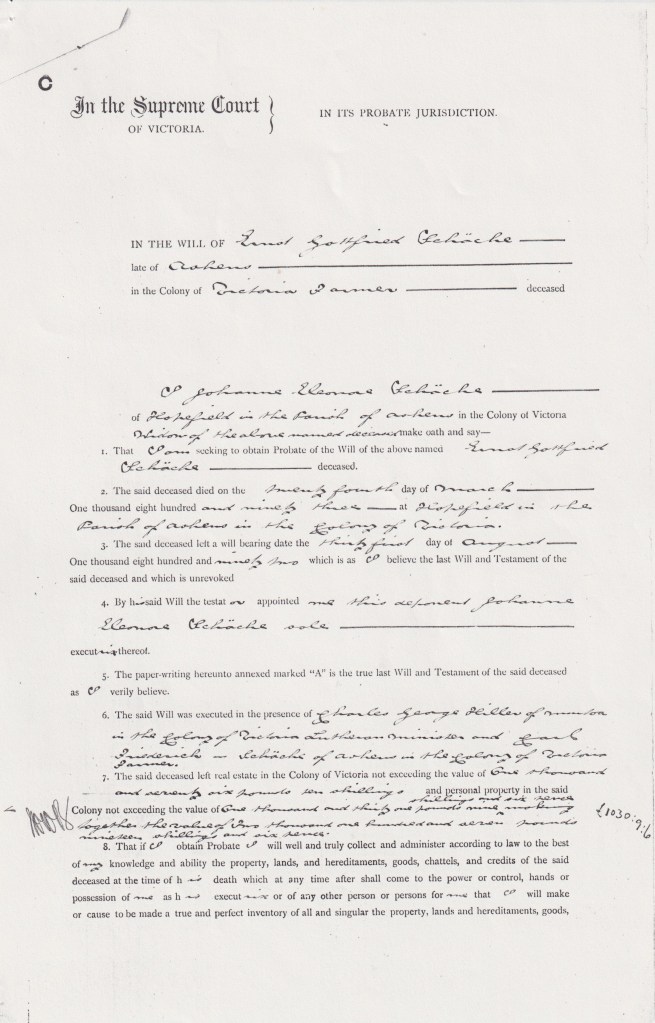 C
In the Supreme Court
OF VICTORIA.
IN ITS PROBATE JURISDICTION.
IN THE WILL OF Ernst Gottfried Schöche
late of Ashens
in the Colony of Victoria Farmer deceased
I Johanne Eleonore Schöche
of Hopefield in the Parish of Ashens in the Colony of Victoria
Widow of the above named deceased make oath and say—
1. That I am seeking to obtain Probate of the Will of the above named Ernst Gottfried
Schöche deceased.
2. The said deceased died on the twenty fourth day of March
One thousand eight hundred and ninety three at Hopefield in the
Parish of Ashens in the Colony of Victoria.
3. The said deceased left a will bearing date the thirty first day of August
One thousand eight hundred and ninety two which is as I believe the last Will and Testament of the
said deceased and which is unrevoked
4. By his said Will the testat or appointed me this deponent Johanne
Eleonore Schöche sole
execut rix thereof.
5. The paper-writing hereunto annexed marked “A” is the true last Will and Testament of the said deceased
as I verily believe.
6. The said Will was executed in the presence of Charles George Hiller of Murtoa
in the Colony of Victoria Lutheran minister and Carl
Friederich Schöche of Ashens in the Colony of Victoria
Farmer.
7. The said deceased left real estate in the Colony of Victoria not exceeding the value of One thousand
and seventy six pounds ten shillings and personal property in the said
shillings and six pence
Colony not exceeding the value of One thousand and thirty one pounds nine making
£1030:9:6
together the value of Two thousand one hundred and seven pounds
nineteen shillings and six pence.
8. That if I obtain Probate I will well and truly collect and administer according to law to the best
of my knowledge and ability the property, lands, and hereditaments, goods, chattels, and credits of the said
deceased at the time of h is death which at any time after shall come to the power or control, hands or
possession of me as h is execut rix or of any other person or persons for me that I will make
or cause to be made a true and perfect inventory of all and singular the property, lands and hereditaments, goods,